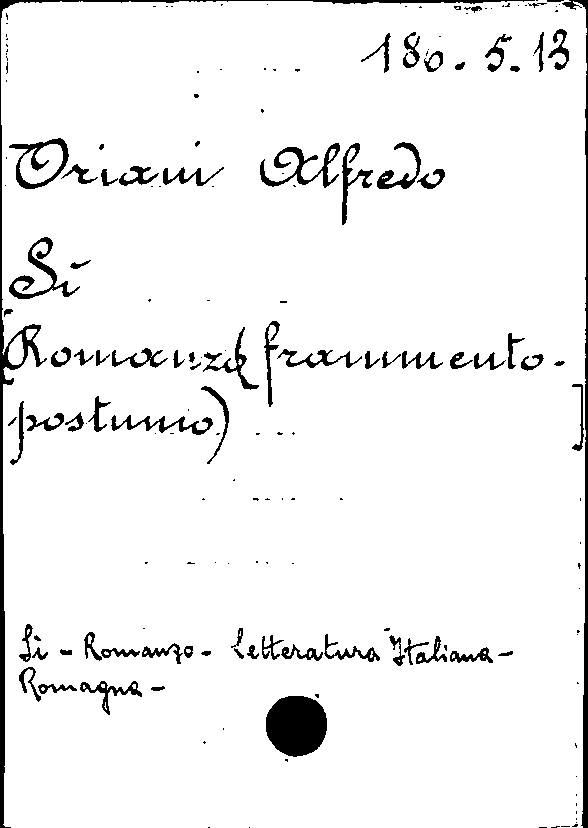 180. 5. 13
Oriani Alfredo
Sì
(Romanzo (frammento -
postumo)
Sì - Romanzo - Letteratura Italiana -
Romagna -